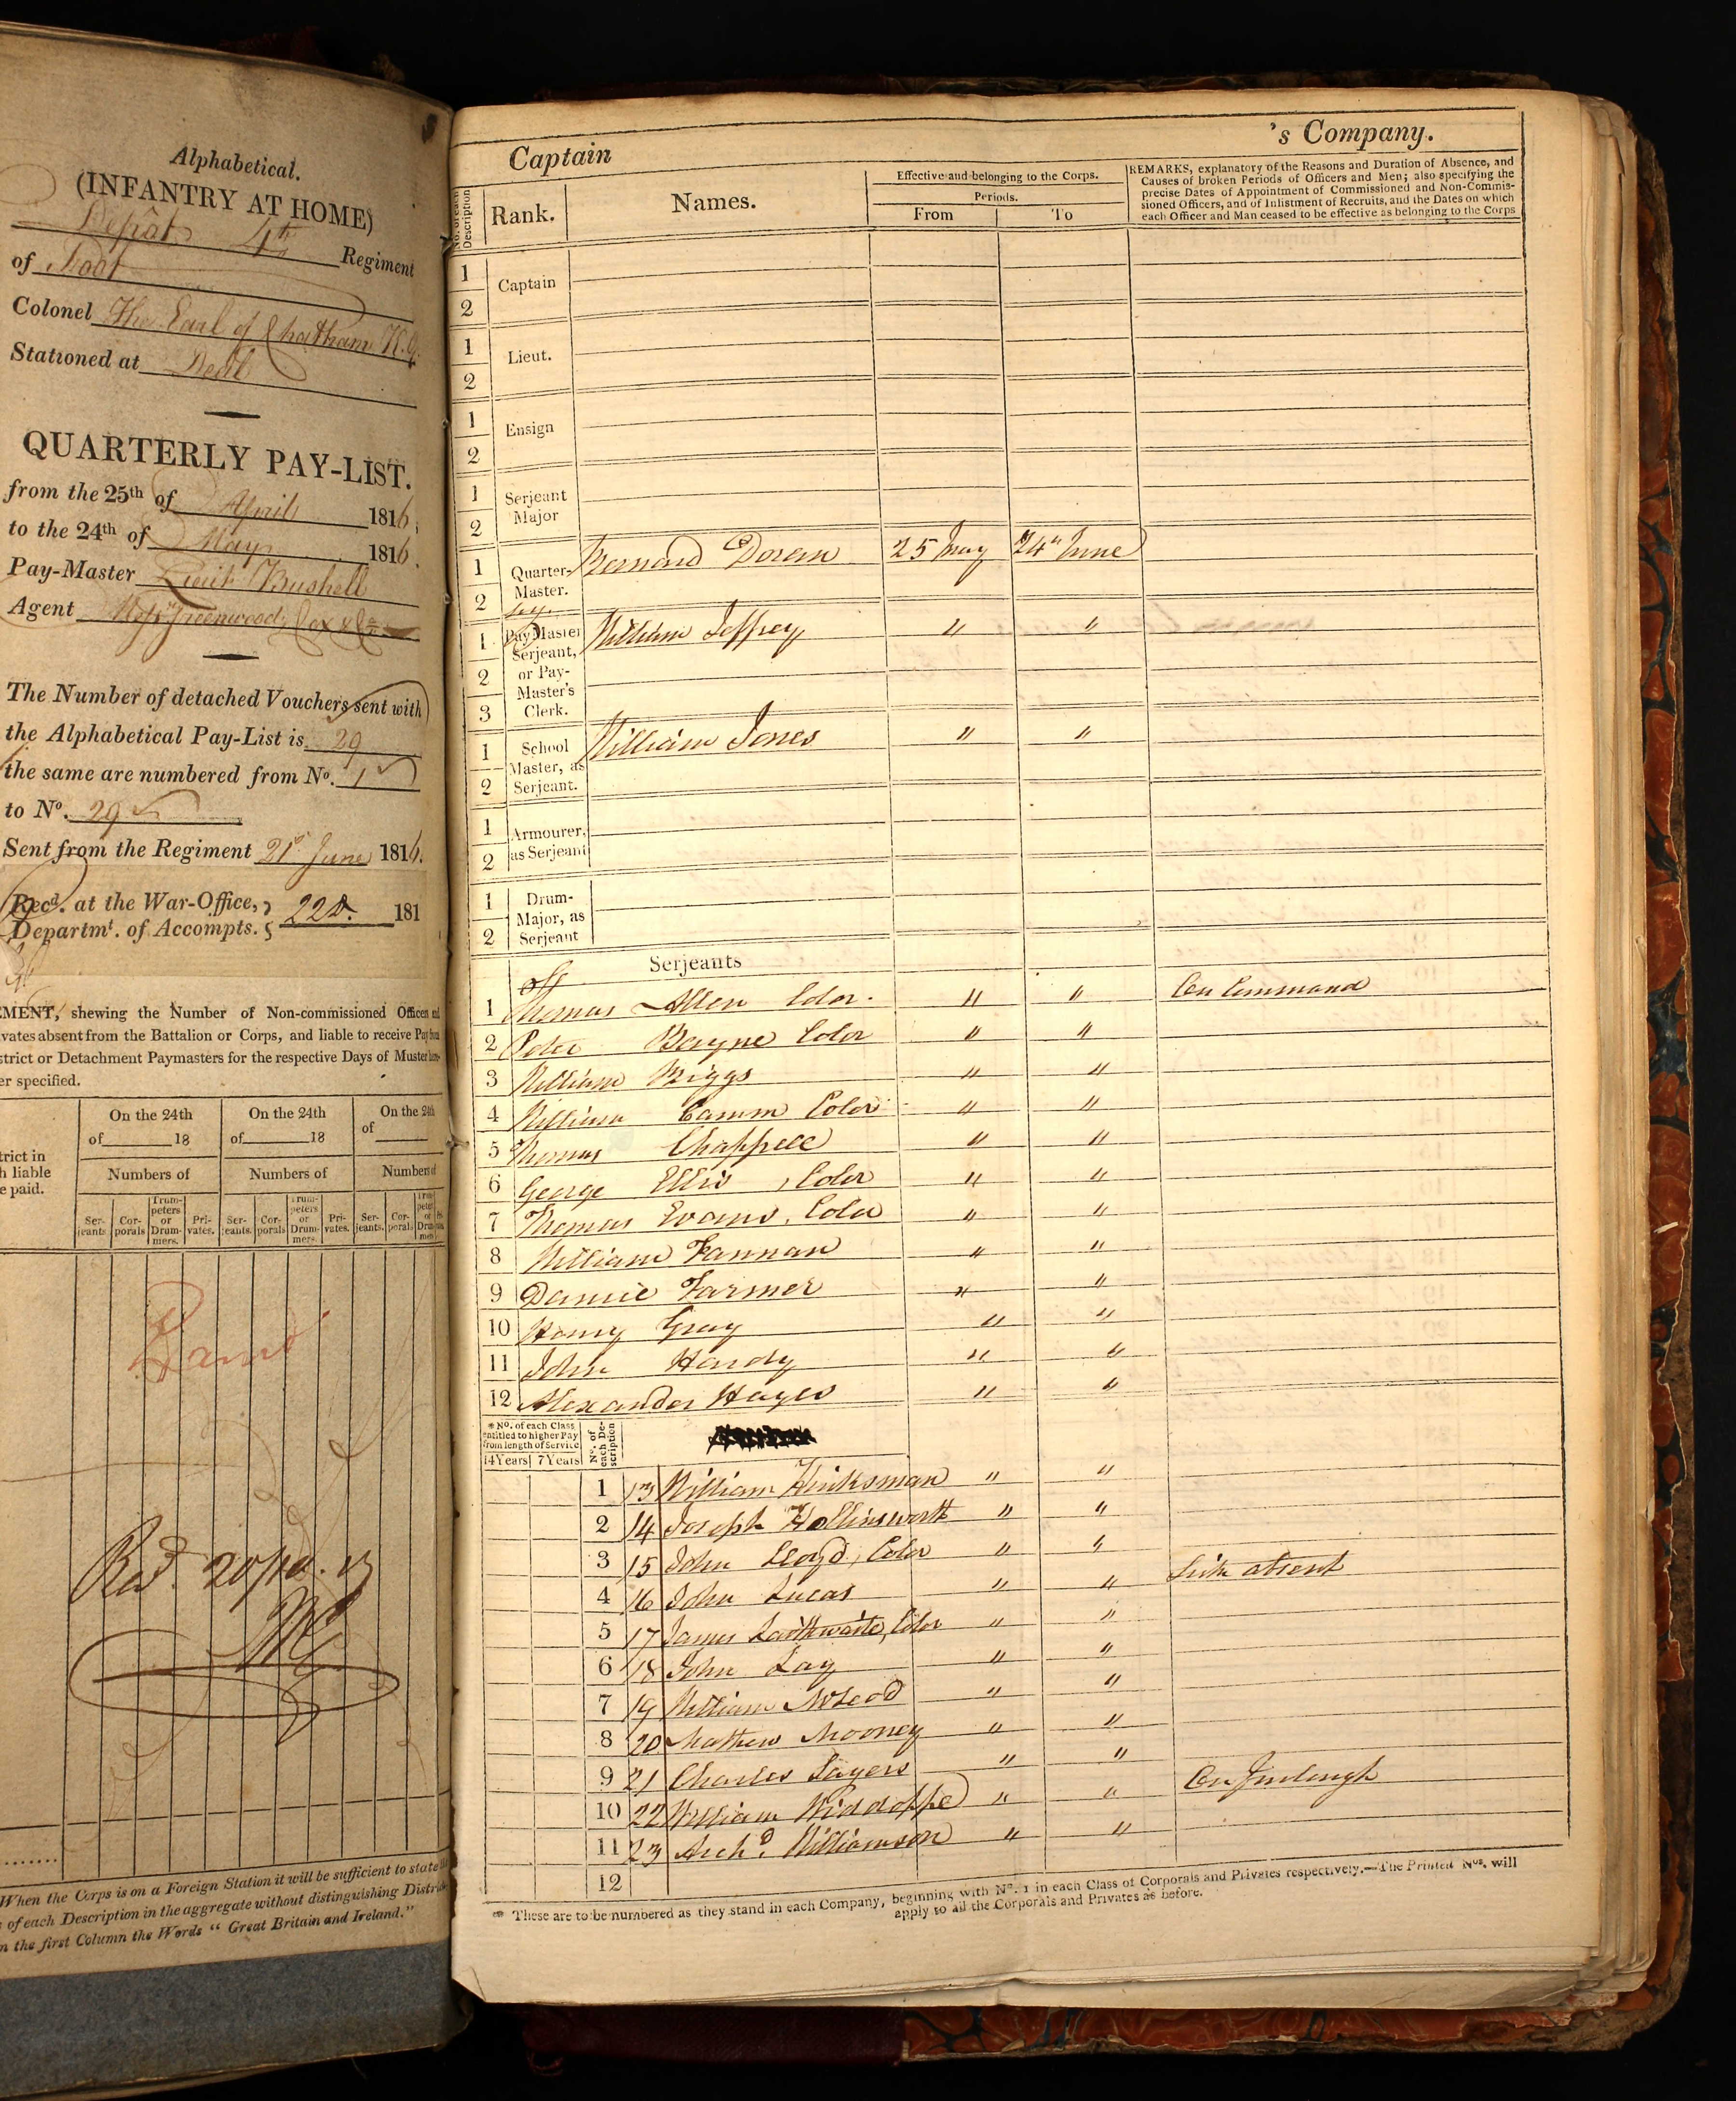 Alphabetical.
(INFANTRY AT HOME)
Depôt 4th Regiment
of Foot
Colonel The Earl of Chatham K.G.
Stationed at Deal
QUARTERLY PAY-LIST.
from the 25th of April 1816,
to the 24th of May 1816.
Pay-Master Lieut Bushell
Agent Greenwood, Cox & Co
The Number of detached Vouchers sent with
the Alphabetical Pay-List is 29
the same are numbered from No. 1
to No. 29
Sent from the Regiment 21st June 1816.
Recd. at the War-Office,
Departmt. of Accompts. 22d. 181
EMENT, shewing the Number of Non-commissioned Officers and
ivates absent from the Battalion or Corps, and liable to receive Pay from
strict or Detachment Paymasters for the respective Days of Muster here-
er specified.
On the 24th On the 24th On the 24th
of 18 of 18 of
trict in
h liable
e paid.
Numbers of Numbers of Numbers of
Ser-jeants Cor-porals Trum-peters or Drum-mers. Pri-vates. Ser-jeants. Cor-porals Trum-peters or Drum-mers. Pri-vates. Ser-jeants. Cor-porals
When the Corps is on a Foreign Station it will be sufficient to state
of each Description in the aggregate without distinguishing Distri
n the first Column the Words "Great Britain and Ireland."
Captain 's Company.
No. of each Description
Rank.
Names.
Effective and belonging to the Corps.
Periods.
From To
REMARKS, explanatory of the Reasons and Duration of Absence, and
Causes of broken Periods of Officers and Men; also specifying the
precise Dates of Appointment of Commissioned and Non-Commis-
sioned Officers, and of Inlistment of Recruits, and the Dates on which
each Officer and Man ceased to be effective as belonging to the Corps
1 Captain
2
1 Lieut.
2
1 Ensign
2
1 Serjeant
2 Major
1 Quarter-Master. Bernard Doran 25 May 24th June
2
1 Pay Master Serjeant, William Jeffrey " "
2 or Pay-Master's
3 Clerk.
1 School Master, as William Jones " "
2 Serjeant.
1 Armourer,
2 as Serjeant
1 Drum-Major, as
2 Serjeant
Serjeants
1 Thomas Allen Color. " " On Command
2 Peter Bayne Color " "
3 William Biggs " "
4 William Camm Color " "
5 Thomas Chappell " "
6 George Ellis, Color " "
7 Thomas Evans, Color " "
8 William Fannan " "
9 Daniel Farmer " "
10 Henry Gray " "
11 John Hardy " "
12 Alexander Hayes " "
*No. of each Class
entitled to higher Pay
from length of Service
14 Years 7 Years
No. of each Description
1 13 William Hinksman " "
2 14 Joseph Hollinsworth " "
3 15 John Lloyd, Color " "
4 16 John Lucas " " Sick absent
5 17 James Laithwaite, Color " "
6 18 John Lay " "
7 19 William McLeod " "
8 20 Mathew Mooney " "
9 21 Charles Sayers " "
10 22 William Widdoppe " " On Furlough
11 23 Archd. Williamson " "
12
* These are to be numbered as they stand in each Company, beginning with No. 1 in each Class of Corporals and Privates respectively.—The Printed Nos. will
apply to all the Corporals and Privates as before.